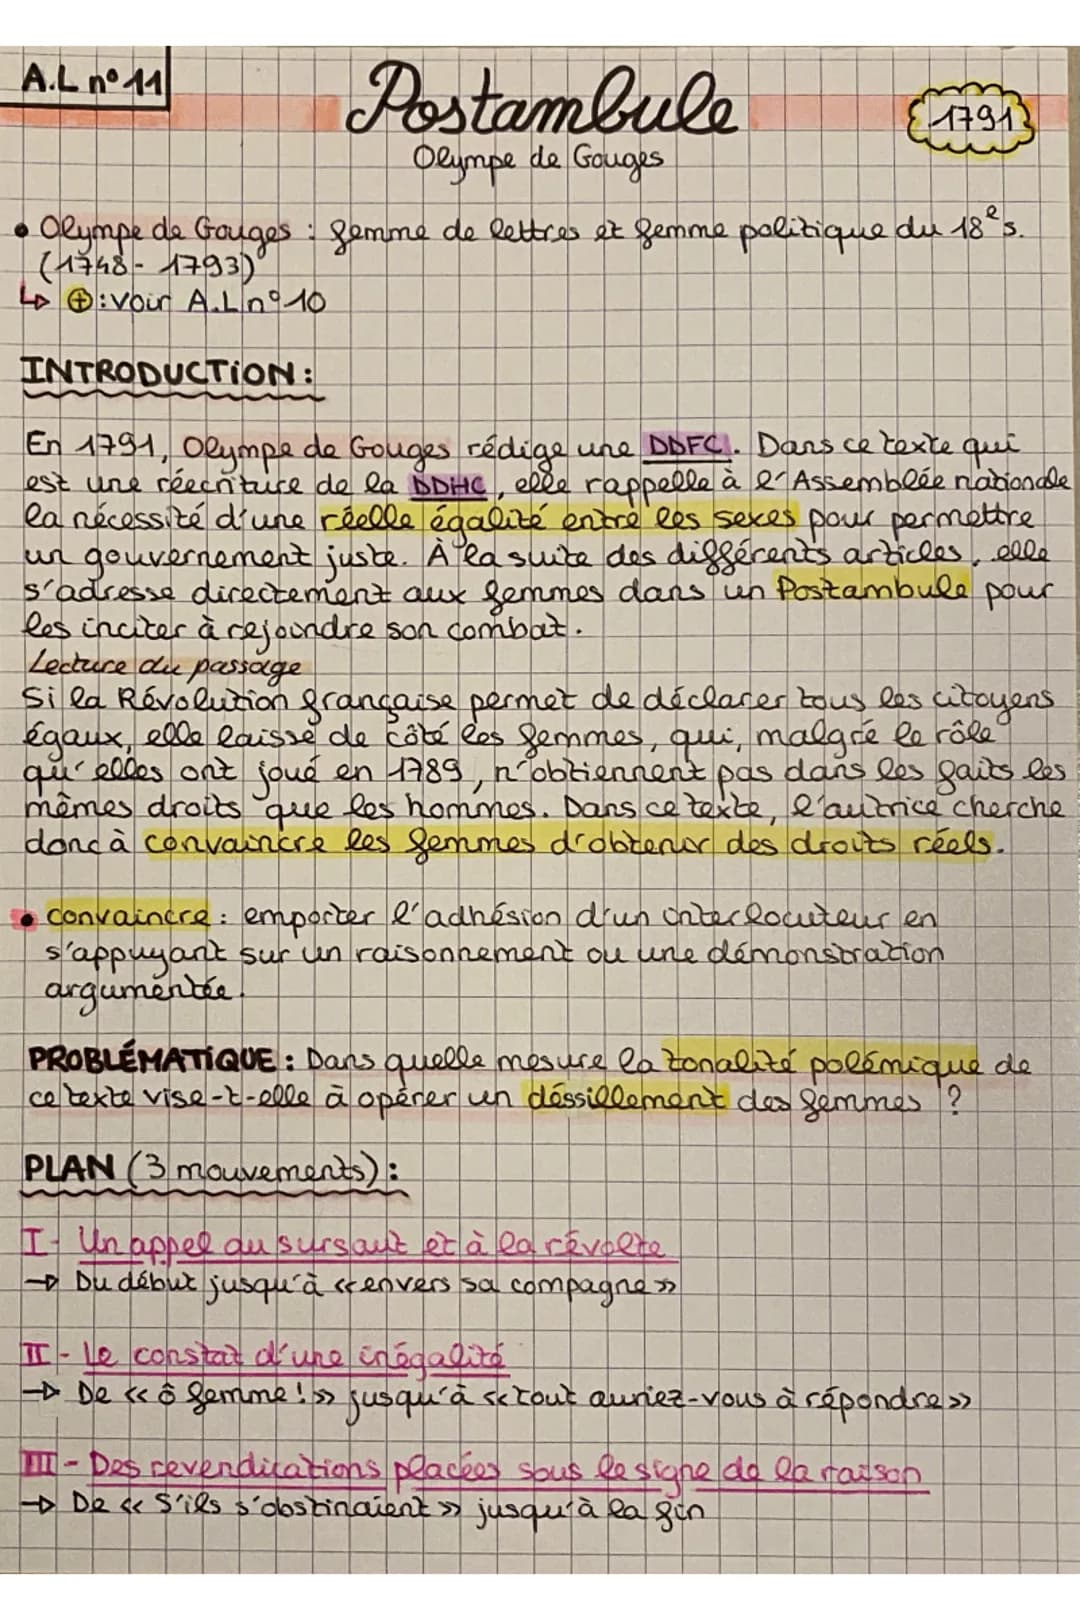 A.L n°11
Postambule
1791
Olympe de Gouges
• Olympe de Gouges : femme de lettres et femme politique du 18e s.
(1748 - 1793)
↳ ⊕ : voir A.L n°10
INTRODUCTION :
En 1791, Olympe de Gouges rédige une DDFC. Dans ce texte qui
est une réecriture de la DDHC, elle rappelle à l'Assemblée nationale
la nécessité d'une réelle égalité entre les sexes pour permettre
un gouvernement juste. À la suite des différents articles, elle
s'adresse directement aux femmes dans un Postambule pour
les inciter à rejoindre son combat.
Lecture du passage
Si la Révolution française permet de déclarer tous les citoyens
égaux, elle laisse de côté les femmes, qui, malgré le rôle
qu'elles ont joué en 1789, n'obtiennent pas dans les faits les
mêmes droits que les hommes. Dans ce texte, l'autrice cherche
donc à convaincre les femmes d'obtenir des droits réels.
• convaincre : emporter l'adhésion d'un interlocuteur en
s'appuyant sur un raisonnement ou une démonstration
argumentée.
PROBLÉMATIQUE : Dans quelle mesure la tonalité polémique de
ce texte vise-t-elle à opérer un déssillement des femmes ?
PLAN (3 mouvements) :
I - Un appel au sursaut et à la révolte
→ Du début jusqu'à « envers sa compagne »
II - Le constat d'une inégalité
→ De « ô femme ! » jusqu'à « tout auriez-vous à répondre »
III - Des revendications placées sous le signe de la raison
→ De « S'ils s'obstinaient » jusqu'à la fin